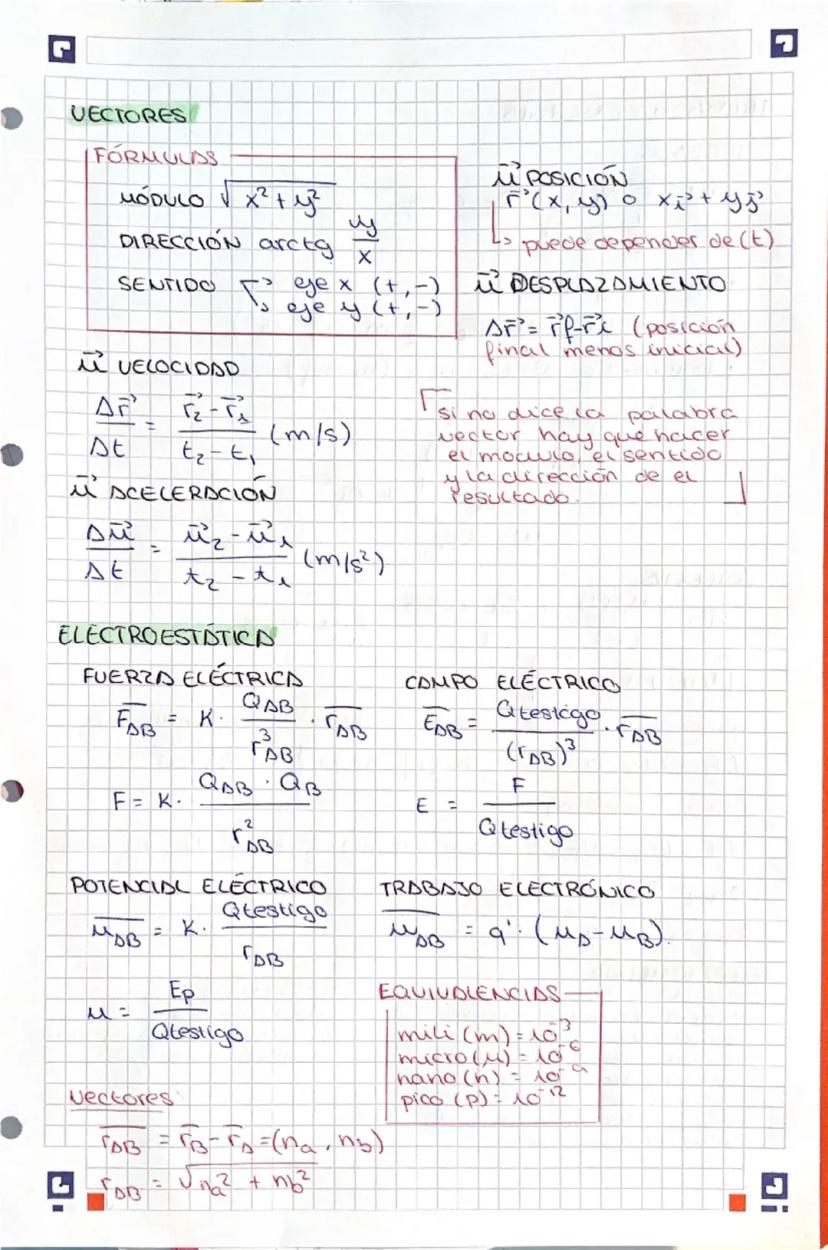 VECTORES
FÓRMULAS
MÓDULO √x² + y²
DIRECCIÓN arctg y/x
SENTIDO → eje x (+,-)
↳ eje y (+,-)
v⃗ POSICIÓN
r⃗ (x, y) o xi⃗ + yj⃗
↳ puede depender de (t)
v⃗ DESPLAZAMIENTO
Δr⃗ = r⃗f - r⃗i (posición
final menos inicial)
v⃗ VELOCIDAD
Δr⃗/Δt = (r⃗₂ - r⃗₁)/(t₂ - t₁) (m/s)
si no dice la palabra
vector hay que hacer
el modulo, el sentido
y la dirección de el
resultado.
v⃗ ACELERACIÓN
Δv⃗/Δt = (v⃗₂ - v⃗₁)/(t₂ - t₁) (m/s²)
ELECTROESTÁTICA
FUERZA ELÉCTRICA
F⃗AB = K · QAB/r³AB · r⃗AB
F = K · (QAB · QB)/r²AB
CAMPO ELÉCTRICO
E⃗AB = Qtestigo/(rAB)³ · r⃗AB
E = F/Qtestigo
POTENCIAL ELÉCTRICO
v⃗AB = K · Qtestigo/rAB
v = Ep/Qtestigo
TRABAJO ELECTRÓNICO
w⃗AB = q' · (vA - vB).
EQUIVALENCIAS
mili (m) = 10⁻³
micro (μ) = 10⁻⁶
nano (n) = 10⁻⁹
pico (p) = 10⁻¹²
Vectores
r⃗AB = r⃗B - r⃗A = (na, nb)
rAB = √na² + nb²